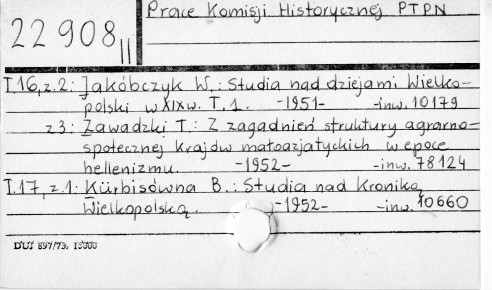 Prace Komisji Historycznej PTPN
22 908 II
T.16, z.2: Jakóbczyk W.: Studia nad dziejami Wielko-
polski w XIX w. T. 1. -1951- -inw. 10179
z 3: Zawadzki T.: Z zagadnień struktury agrarno-
społecznej krajów małoazjatyckich w epoce
hellenizmu. -1952- -inw. 78124
T.17, z.1: Kürbisówna B.: Studia nad Kroniką
Wielkopolską. -1952- -inw. 10660
DUJ 897/73.